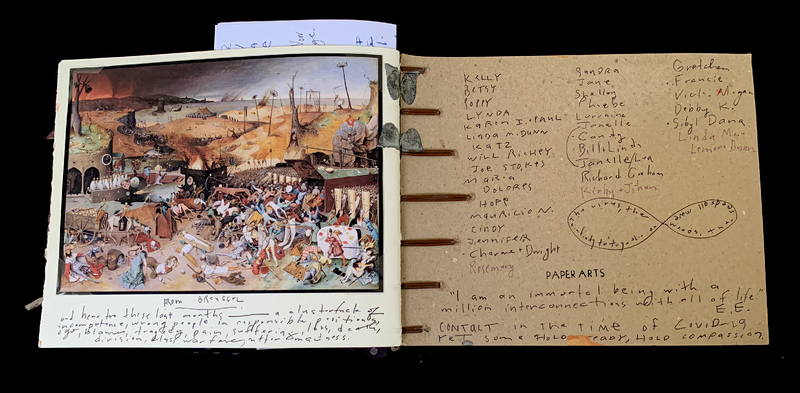 From BREUGEL
and here too these last months — a clusterfuck of
incompetence, wrong people in responsible positions,
ego, blame, tragedy, pain, suffering, loss, death,
division, class warfare, utter madness.
KELLY
BETSY
POPPY
LYNDA
KAREN I. PAUL
LINDA M. DUNN
KATZ
WILL RICHEY
JOE STOKES
MARIA
DOLORES
HOPE
MAURICIO N.
CINDY
Jennifer
Charme + Dwight
Rosemary
Sandra
Jane
Shelley
Phiebe
Lorraine
Janelle
Candy
Bill & Linda
Janelle/Lea
Richard Graham
Kirby +
Gretchen
Francie
Vicki Megan
Debby K.
Sibyl Dana
Linda
the virus, the
woods, the
PAPER ARTS
"I am an immortal being with a
million interconnections with all of life."
E.E.
CONTACT in the time of COVID-19
yet some HOLD steady, HOLD compassion.